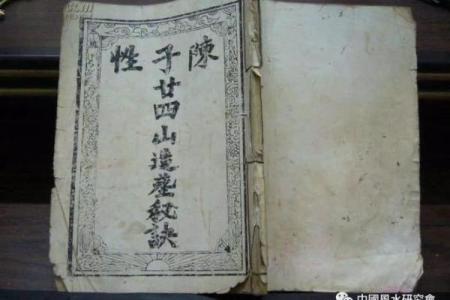 陳子性
廿四山造葬秘訣
中國風水研究會